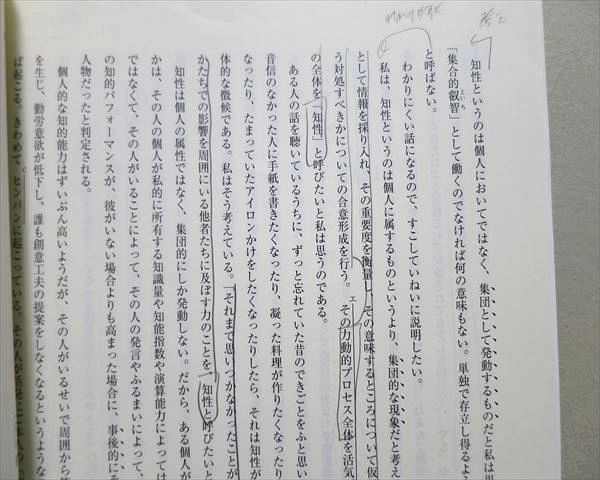 知性というのは個人においてではなく、集団として発動するものだと私は思
「集合的叡智」として働くのでなければ何の意味もない。単独で存立し得るよう
と呼ばない。
わかりにくい話になるので、すこしていねいに説明したい。
私は、知性というのは個人に属するものというより、集団的な現象だと考え
として情報を採り入れ、その重要度を衡量し、その意味するところについて仮
う対処すべきかについての合意形成を行う。その力動的プロセス全体を活気
の全体を「知性」と呼びたいと私は思うのである。
ある人の話を聴いているうちに、ずっと忘れていた昔のできごとをふと思い
音信のなかった人に手紙を書きたくなったり、凝った料理が作りたくなったり
なったり、たまっていたアイロンかけをしたくなったりしたら、それは知性が
体的な徴候である。私はそう考えている。「それまで思いつかなかったことが
かたちでの影響を周囲にいる他者たちに及ぼす力のことを、知性と呼びたいと
知性は個人の属性ではなく、集団的にしか発動しない。だから、ある個人が
かは、その人の個人が私的に所有する知識量や知能指数や演算能力によっては
ではなくて、その人がいることによって、その人の発言やふるまいによって、
の知的パフォーマンスが、彼がいない場合よりも高まった場合に、事後的にそ
人物だったと判定される。
個人的な知的能力はずいぶん高いようだが、その人がいるせいで周囲から
を生じ、勤労意欲が低下し、誰も創意工夫の提案をしなくなるというような
ば起こる。きわめて、ヒンパンに起こっている。その人が活発にご本人の